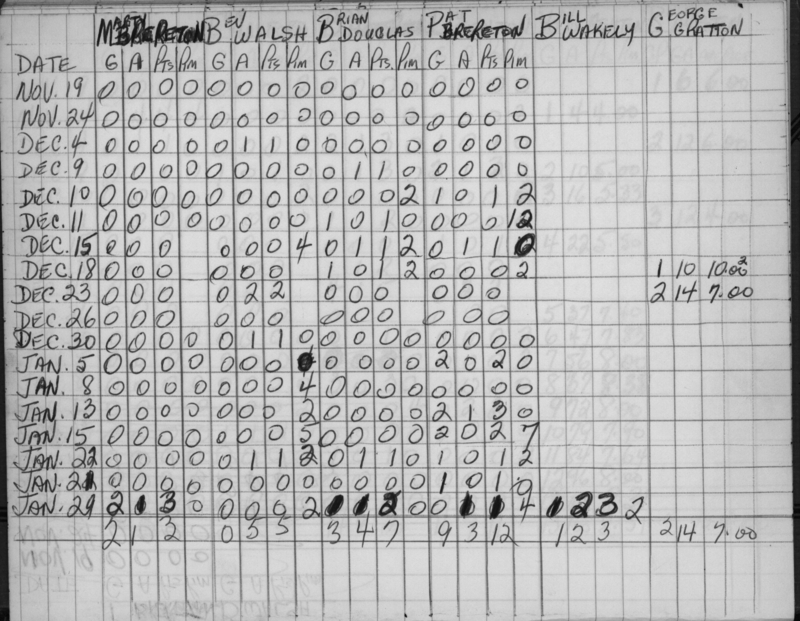 BRERETON BEN WALSH BRIAN DOUGLAS PAT BRERETON BILL WAKELY GEORGE GRATTON
DATE G A Pts Pim G A Pts Pim G A Pts. Pim G A Pts Pim
NOV. 19 0 0 0 0 0 0 0 0 0 0 0 0 0 0 0 0
NOV. 24 0 0 0 0 0 0 0 0 0 0 0 0 0 0 0 0
DEC. 4 0 0 0 0 0 1 1 0 0 0 0 0 0 0 0 0
DEC. 9 0 0 0 0 0 0 0 0 0 1 1 0 0 0 0 0
DEC. 10 0 0 0 0 0 0 0 0 0 0 0 2 1 0 1 2
DEC. 11 0 0 0 0 0 0 0 0 1 0 1 0 0 0 0 12
DEC. 15 0 0 0 0 0 0 4 0 1 1 2 0 1 1 0
DEC. 18 0 0 0 0 0 0 1 0 1 2 0 0 0 2 1 10 10.00
DEC. 23 0 0 0 0 2 2 0 0 0 0 0 0 2 14 7.00
DEC. 26 0 0 0 0 0 0 0 0 0 0 0 0
DEC. 30 0 0 0 0 0 1 1 0 0 0 0 0 0 0 0 0
JAN. 5 0 0 0 0 0 0 0 0 0 0 0 2 0 2 0
JAN. 8 0 0 0 0 0 0 0 4 0 0 0 0 0 0 0 0
JAN. 13 0 0 0 0 0 0 0 2 0 0 0 0 2 1 3 0
JAN. 15 0 0 0 0 0 0 0 5 0 0 0 0 2 0 2 7
JAN. 22 0 0 0 0 0 1 1 2 0 1 1 0 1 0 1 2
JAN. 0 0 0 0 0 0 0 0 0 0 0 0 1 0 1 0
JAN. 29 2 1 3 0 0 0 0 2 1 1 2 0 0 1 1 4 1 2 3 2
2 1 3 0 5 5 3 4 7 9 3 12 1 2 3 2 14 7.00